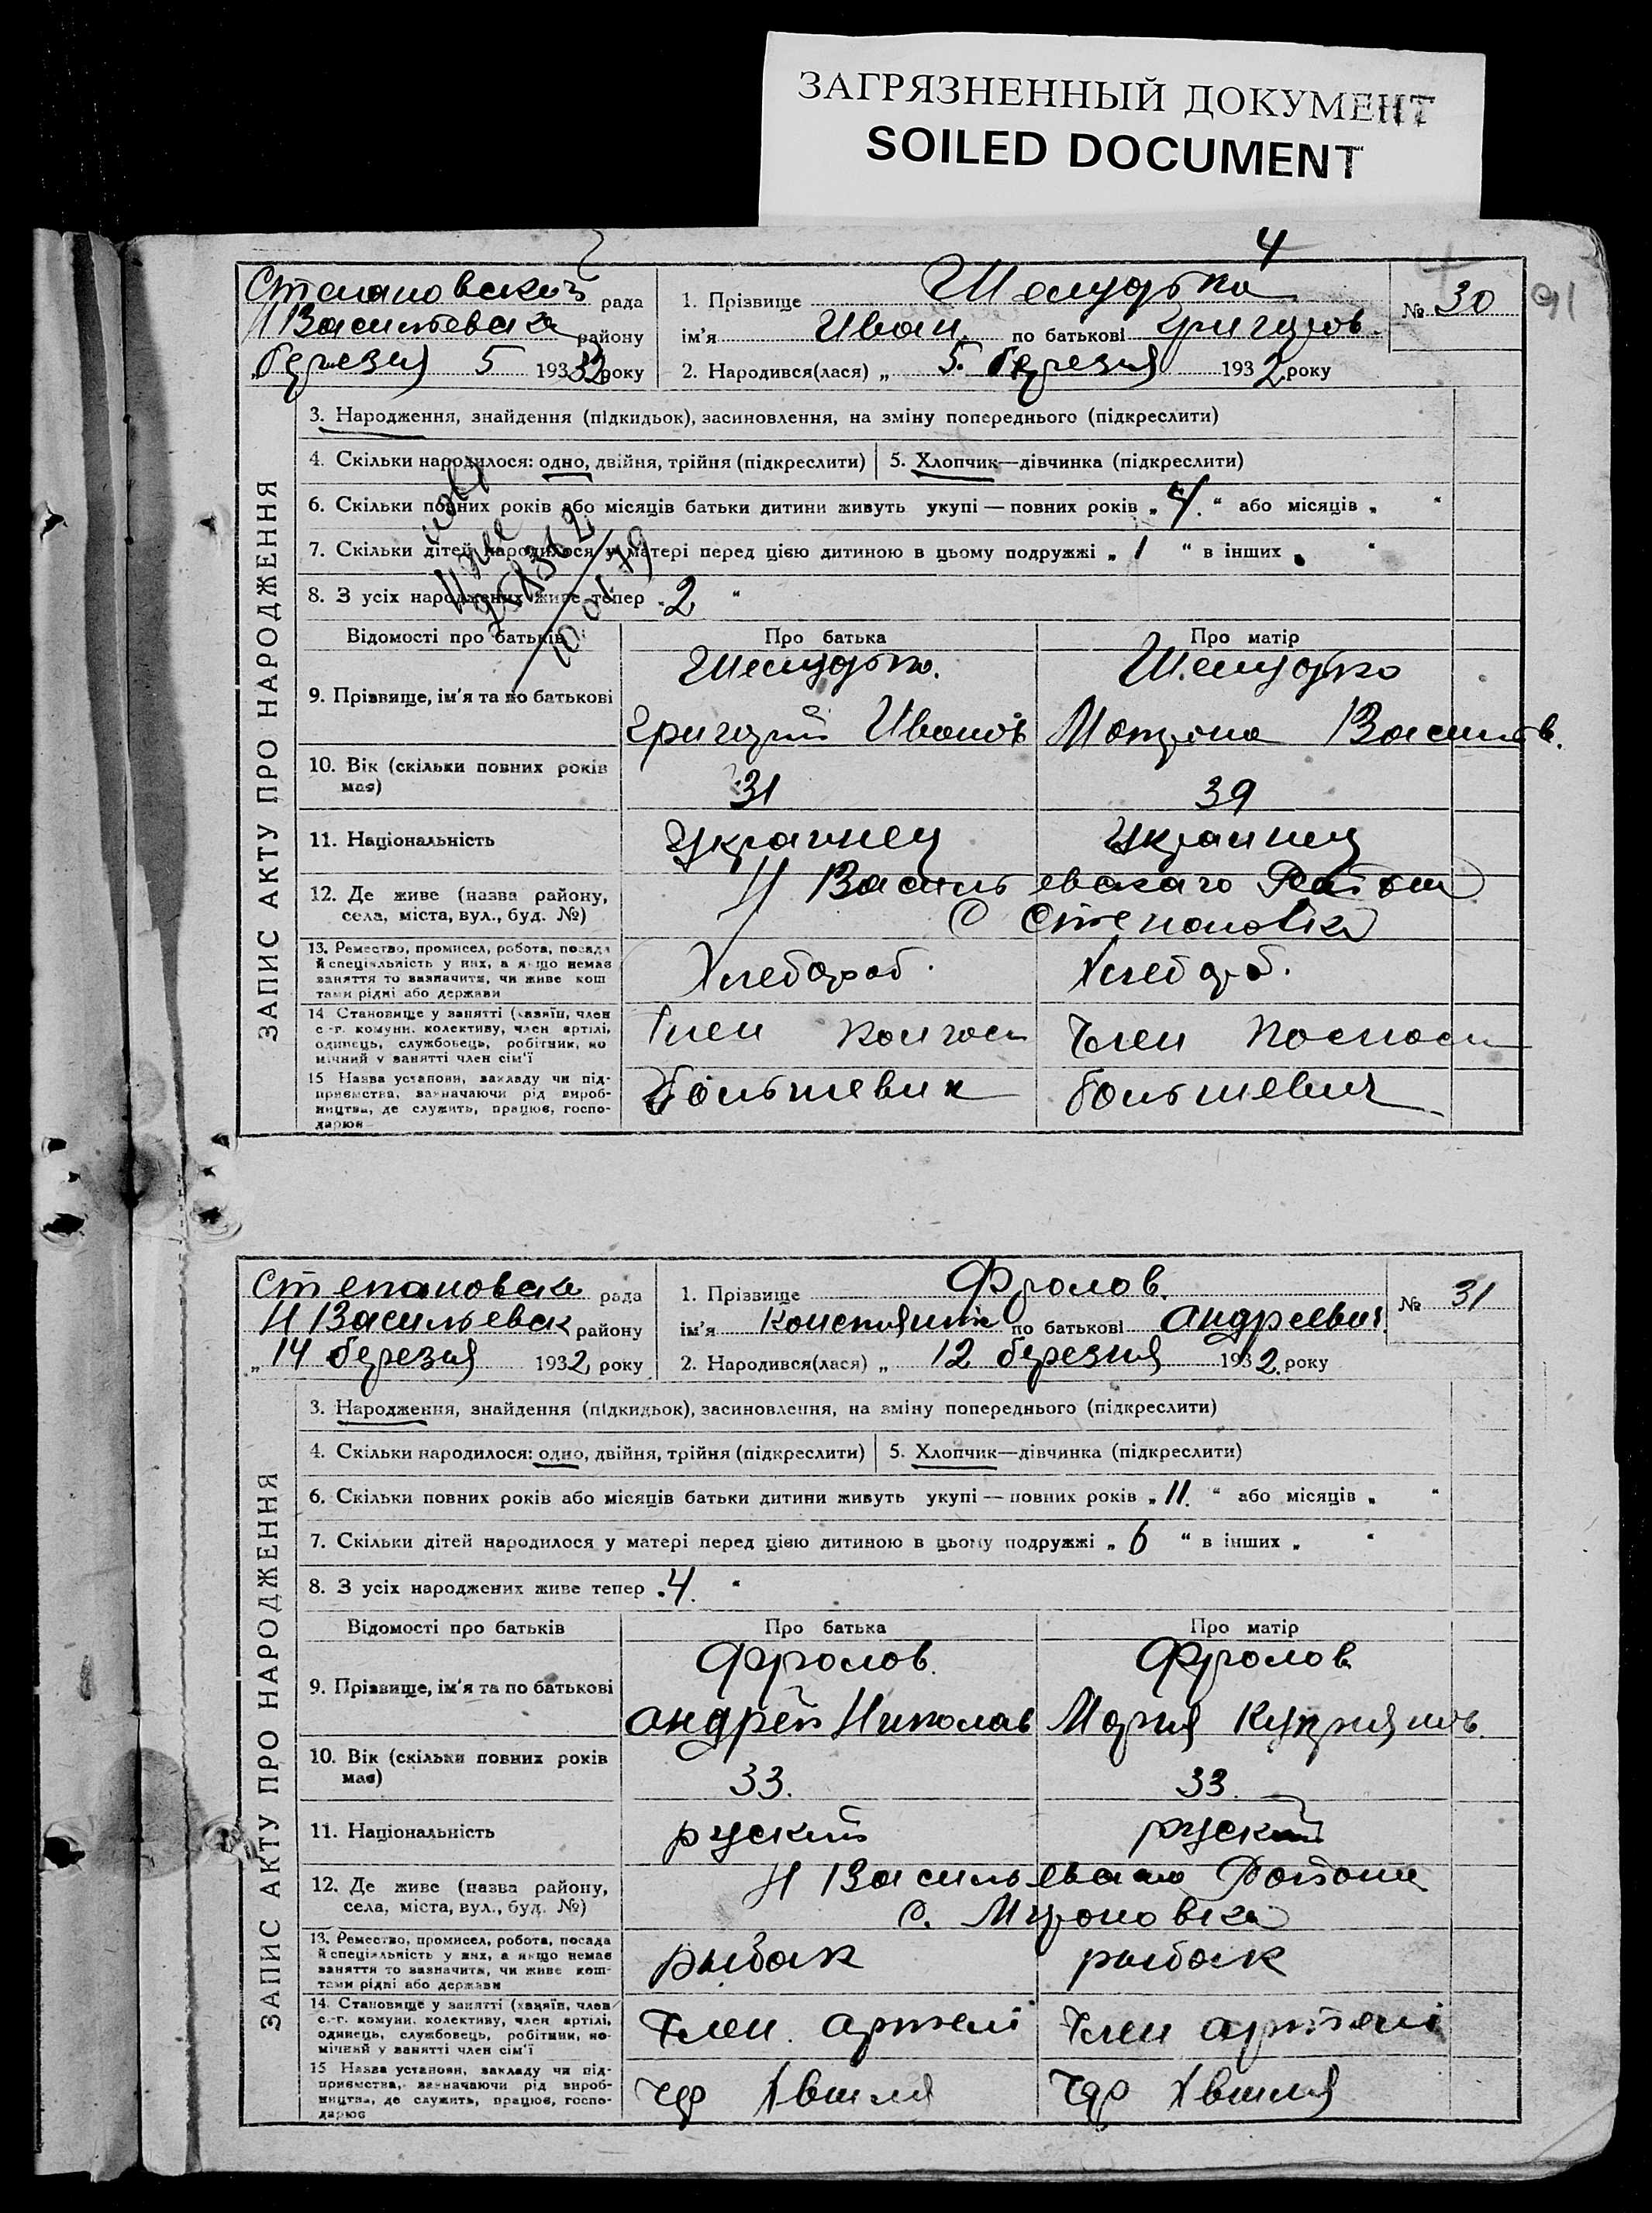 ЗАГРЯЗНЕННЫЙ ДОКУМЕНТ
SOILED DOCUMENT
4
91
Степановской рада
Н Васильевска району
„березня 5 1932 року
1. Прізвище Шелудько
ім'я Иван по батькові Григоров.
2. Народився(лася) „ 5. березня 1932 року
№ 30
ЗАПИС АКТУ ПРО НАРОДЖЕННЯ
3. Народження, знайдення (підкидьок), засиновлення, на зміну попереднього (підкреслити)
4. Скільки народилося: одно, двійня, трійня (підкреслити) 5. Хлопчик—дівчинка (підкреслити)
6. Скільки повних років або місяців батьки дитини живуть укупі — повних років „ 4. “ або місяців „ “
7. Скільки дітей народилося у матері перед цією дитиною в цьому подружжі „ 1 “ в інших „ “
8. З усіх народжених живе тепер „ 2 “
10 01 79
Відомості про батьків Про батька Про матір
9. Прізвище, ім'я та по батькові
Шелудько. Шелудько
Григорий Иванов Мотрона Васильв.
10. Вік (скільки повних років має)
31 39
11. Національність Украинец Украинец
12. Де живе (назва району, села, міста, вул., буд. №)
Н Васильевскаго Района
С Степановка
13. Ремество, промисел, робота, посада й спеціяльність у них, а якщо немає заняття то зазначити, чи живе коштами рідні або держави
Хлебороб. Хлебороб.
14 Становище у занятті (хазяїн, член с.-г. комуни, колективу, член артілі, одинець, службовець, робітник, помічний у занятті член сім'ї
Член Колгосп Член
15 Назва установи, закладу чи підприємства, зазначаючи рід виробництва, де служить, працює, господарює
Большевик большевик
Степановска рада
Н Васильевск району
„14 березня 1932 року
1. Прізвище Фролов.
ім'я Констянтін по батькові Андреевич
2. Народився(лася) „ 12 березня 1932 року
№ 31
ЗАПИС АКТУ ПРО НАРОДЖЕННЯ
3. Народження, знайдення (підкидьок), засиновлення, на зміну попереднього (підкреслити)
4. Скільки народилося: одно, двійня, трійня (підкреслити) 5. Хлопчик—дівчинка (підкреслити)
6. Скільки повних років або місяців батьки дитини живуть укупі — повних років „ 11. “ або місяців „ “
7. Скільки дітей народилося у матері перед цією дитиною в цьому подружжі „ 6 “ в інших „ “
8. З усіх народжених живе тепер „ 4. “
Відомості про батьків Про батька Про матір
9. Прізвище, ім'я та по батькові
Фролов. Фролов
Андрей Николав Мария Куприянов.
10. Вік (скільки повних років має)
33. 33.
11. Національність руский руский
12. Де живе (назва району, села, міста, вул., буд. №)
Н Васильевскаго Района
С. Мироновка
13. Ремество, промисел, робота, посада й спеціяльність у них, а якщо немає заняття то зазначити, чи живе коштами рідні або держави
рыбак рыбак
14. Становище у занятті (хазяїн, член с.-г. комуни, колективу, член артілі, одинець, службовець, робітник, помічний у занятті член сім'ї
Член артелі Член артелі
15 Назва установи, закладу чи підприємства, зазначаючи рід виробництва, де служить, працює, господарює
Чер Хвиля Чер Хвиля